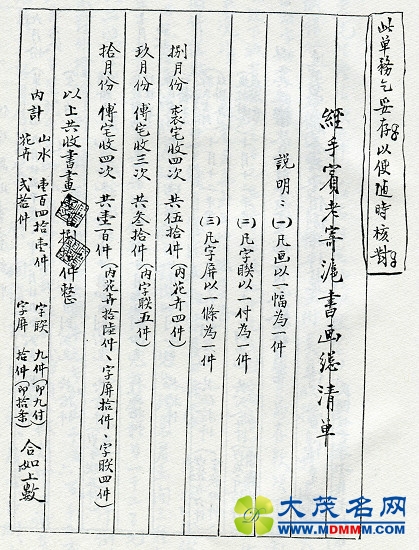 此单務乞妥存以便随時核對
經手賓老寄滬書画總清单
説明：(一)凡画以一幅為一件
(二)凡字聯以一付為一件
(三)凡字屏以一條為一件
捌月份 裘宅收四次 共伍拾件(内花卉四件)
玖月份 傅宅收三次 共叁拾件(内字聯五件)
拾月份 傅宅收四次 共壹百件(内花卉拾陸件、字屏拾件、字聯四件)
以上共收書畫壹百捌拾件整
内計 山水 壹百四拾壹件 字聯 九件(即九付)
花卉 弍拾件 字屏 拾件(即拾条) 合如上數
大茂名网
WWW.MDMMM.COM